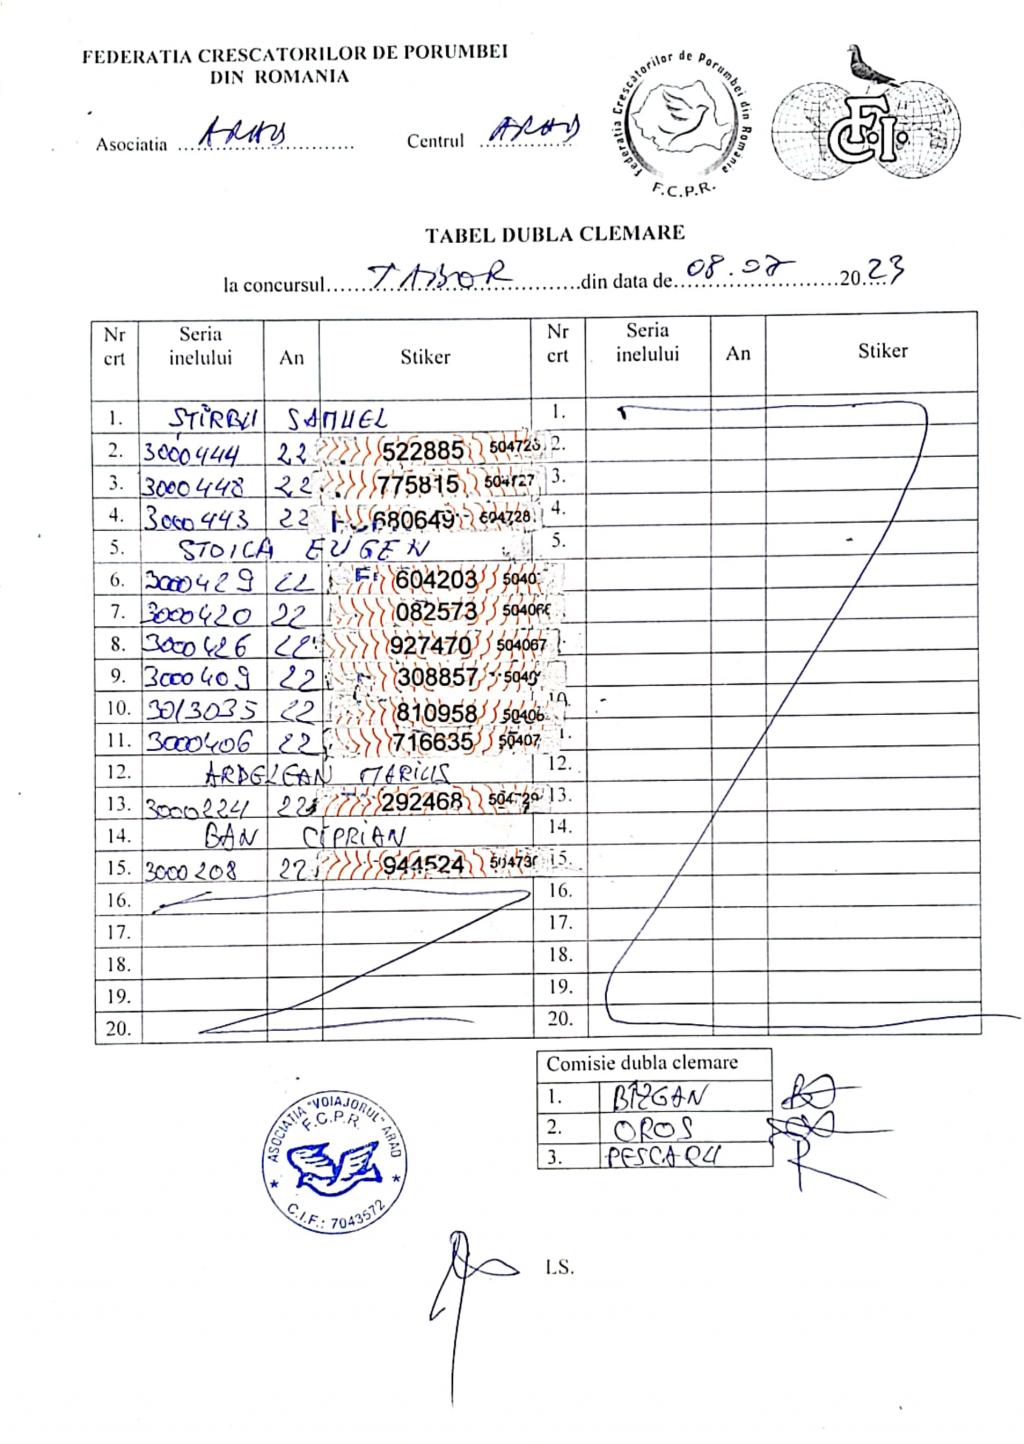 FEDERATIA CRESCATORILOR DE PORUMBEI
DIN ROMANIA
Asociatia ARAD Centrul ARAD
Federatia Crescatorilor de Porumbei din Romania
F.C.P.R.
F.C.I.
TABEL DUBLA CLEMARE
la concursul TABOR din data de 08.07 2023
Nr crt Seria inelului An Stiker Nr crt Seria inelului An Stiker
1. STÎRBU SAMUEL 1.
2. 3000444 22 522885 2.
3. 3000448 22 775815 504727 3.
4. 3000443 22 680649 504728 4.
5. STOICA EUGEN 5.
6. 3000429 22 604203 5040
7. 3000420 22 082573 504066
8. 3000426 22 927470 504067
9. 3000409 22 308857 5040
10. 3013035 22 810958 50406 10.
11. 3000406 22 716635 50407
12. ARDELEAN MARIUS 12.
13. 3000224 22 292468 504729 13.
14. BAN CIPRIAN 14.
15. 3000208 22 944524 504730 15.
16. 16.
17. 17.
18. 18.
19. 19.
20. 20.
Comisie dubla clemare
1. BÎZGAN
2. OROS
3. PESCARU
ASOCIATIA "VOIAJORUL" ARAD
F.C.P.R.
C.I.F.: 7043572
LS.